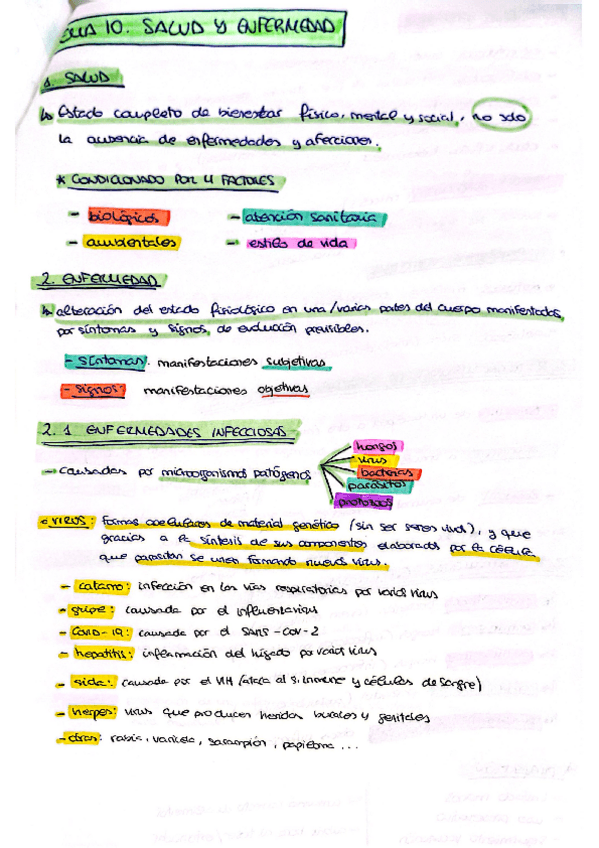 TEMA 10. SALUD Y ENFERMEDAD
1. SALUD
↳ Estado completo de bienestar físico, mental y social, no solo
la ausencia de enfermedades y afecciones.
* CONDICIONADO POR 4 FACTORES
- biológicos - atención sanitaria
- ambientales - estilo de vida
2. ENFERMEDAD
↳ alteración del estado fisiológico en una/varias partes del cuerpo manifestados
por síntomas y signos, de evolución previsibles.
- SÍNTOMAS: manifestaciones subjetivas
- signos: manifestaciones objetivas
2.1 ENFERMEDADES INFECCIOSAS
→ causadas por microorganismos patógenos
hongos
virus
bacterias
parásitos
protozoos
• VIRUS: formas acelulares de material genético (sin ser seres vivos), y que
gracias a la síntesis de sus componentes elaborados por la célula
que parasitan se unen formando nuevos virus.
- catarro: infección en las vías respiratorias por varios virus
- gripe: causada por el influenzavirus
- COVID-19: causada por el SARS-CoV-2
- hepatitis: inflamación del hígado por varios virus
- sida: causada por el VIH (ataca al s. inmune y células de sangre)
- herpes: virus que producen heridas bucales y genitales
- otras: rabia, varicela, sarampión, papiloma ...